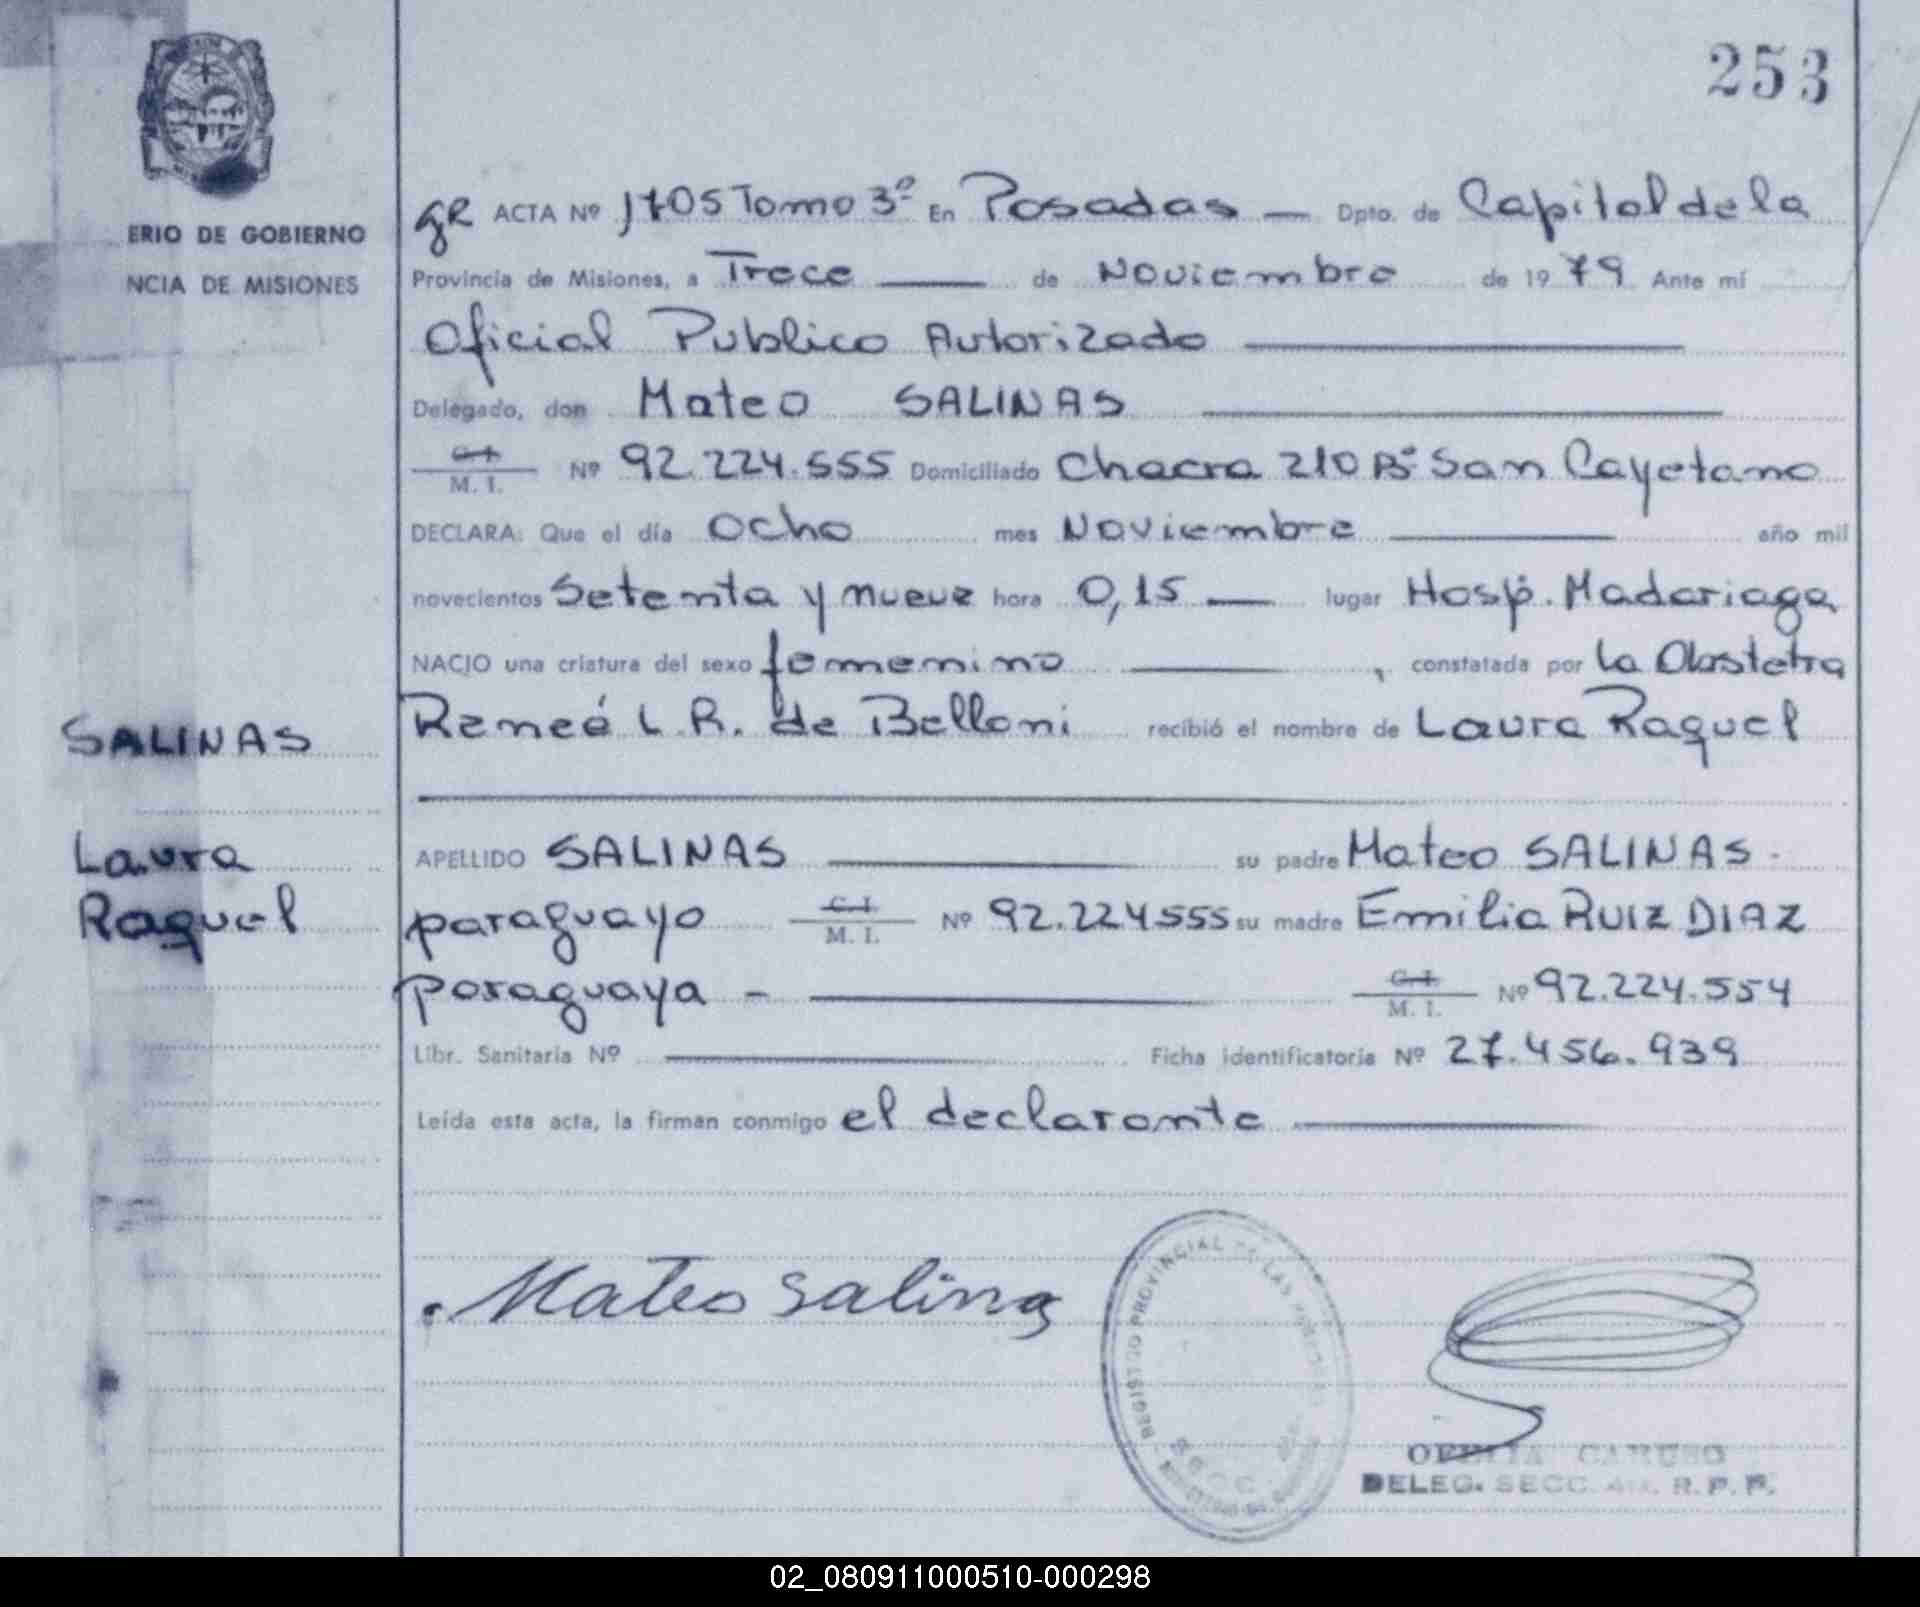 253
ERIO DE GOBIERNO
NCIA DE MISIONES
gR ACTA Nº 1705 Tomo 3º En Posadas — Dpto. de Capital de la
Provincia de Misiones, a Trece — de Noviembre de 1979 Ante mí
Oficial Publico Autorizado
Delegado, don Mateo SALINAS
C. I. M. I. Nº 92.224.555 Domiciliado Chacra 210 Bº San Cayetano
DECLARA: Que el día Ocho mes Noviembre año mil
novecientos Setenta y nueve hora 0,15 — lugar Hosp. Madariaga
NACIO una criatura del sexo femenino , constatada por la Obstetra
Reneé L. R. de Belloni recibió el nombre de Laura Raquel
SALINAS
Laura
Raquel
APELLIDO SALINAS su padre Mateo SALINAS -
paraguayo C. I. M. I. Nº 92.224555 su madre Emilia RUIZ DIAZ
paraguaya - C. I. M. I. Nº 92.224.554
Libr. Sanitaria Nº Ficha identificatoria Nº 27.456.939
Leída esta acta, la firman conmigo el declarante
Mateo Salinas
REGISTRO PROVINCIAL DE LAS
CARUSO
DELEG. SECC. R. P. P.
02_080911000510-000298